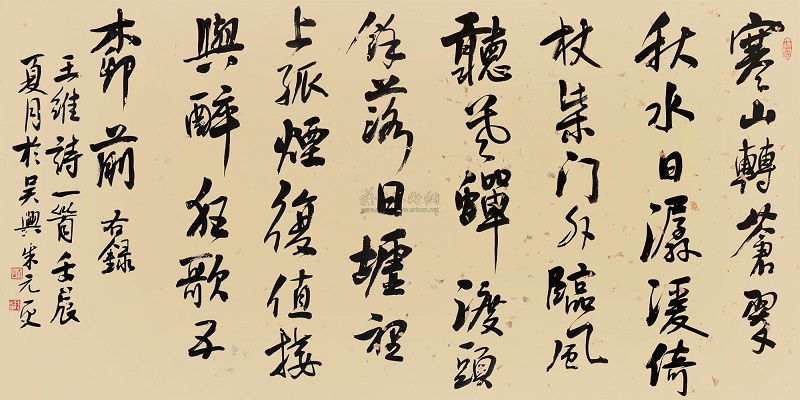 寒山轉蒼翠
秋水日潺湲倚
杖柴门外臨風
聽暮蟬渡頭
餘落日墟裡
上孤煙復值接
與醉狂歌五
柳前 右錄
王維詩一首壬辰
夏月於吳興朱元更